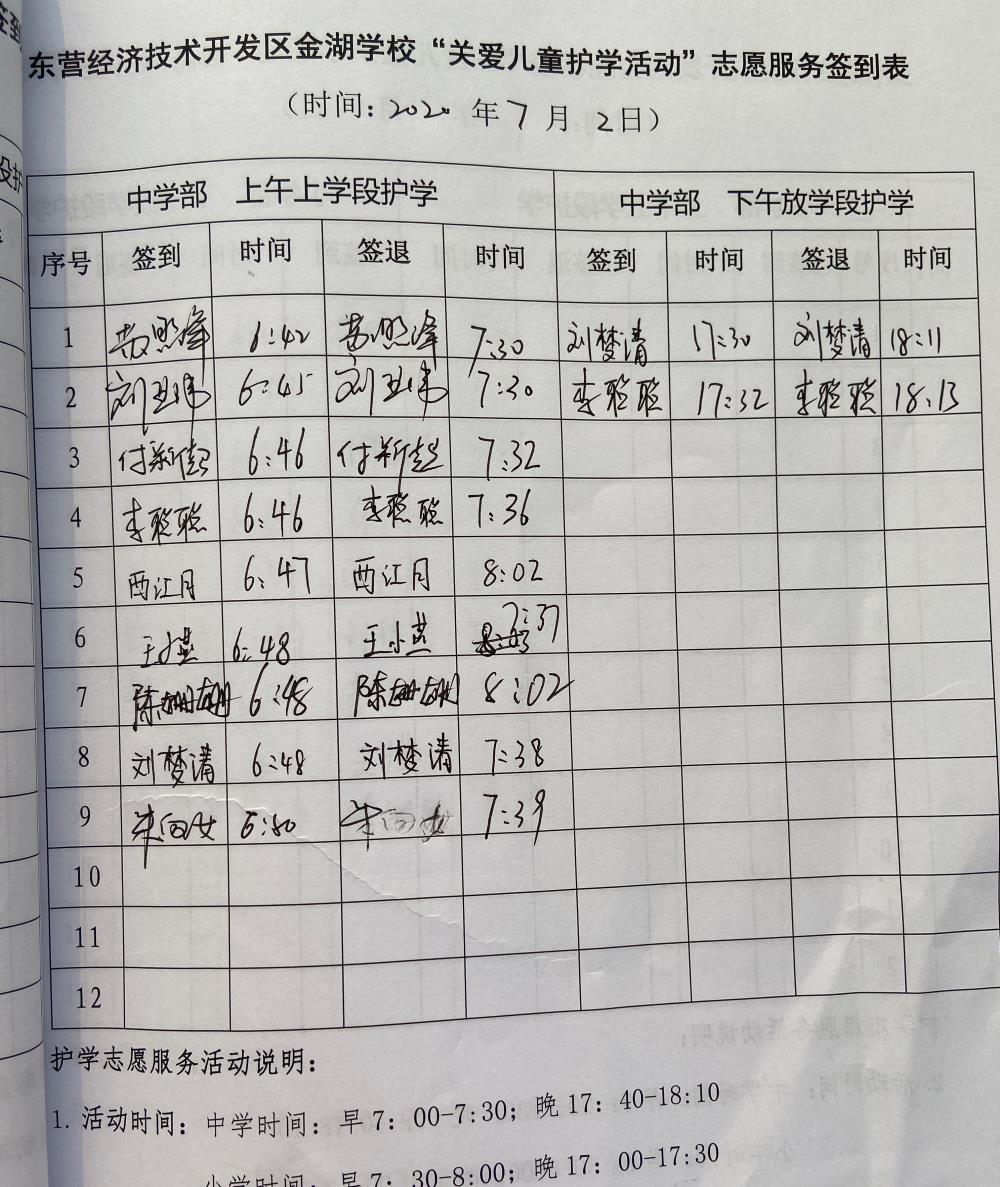 东营经济技术开发区金湖学校“关爱儿童护学活动”志愿服务签到表
（时间：2020 年 7 月 2日）
中学部 上午上学段护学 中学部 下午放学段护学
序号 签到 时间 签退 时间 签到 时间 签退 时间
1 6:42 7:30 刘梦清 17:30 刘梦清 18:11
2 6:45 7:30 李聪聪 17:32 李聪聪 18:13
3 付新超 6:46 付新超 7:32
4 李聪聪 6:46 李聪聪 7:36
5 西江月 6:47 西江月 8:02
6 王小燕 6:48 王小燕 7:37
7 陈姗姗 6:48 陈姗姗 8:02
8 刘梦清 6:48 刘梦清 7:38
9 6:50 7:39
10
11
12
护学志愿服务活动说明：
1. 活动时间：中学时间：早7：00-7:30；晚17：40-18:10
小学时间：早7：30-8:00；晚17：00-17:30